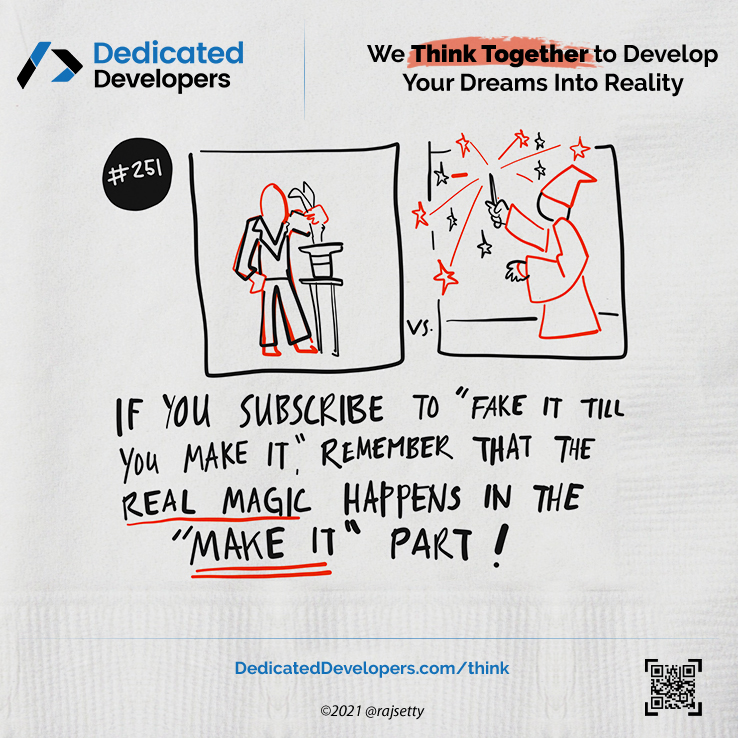 Dedicated
Developers
We Think Together to Develop
Your Dreams Into Reality
#251
VS.
IF YOU SUBSCRIBE TO "FAKE IT TILL
YOU MAKE IT," REMEMBER THAT THE
REAL MAGIC HAPPENS IN THE
"MAKE IT" PART!
DedicatedDevelopers.com/think
©2021 @rajsetty